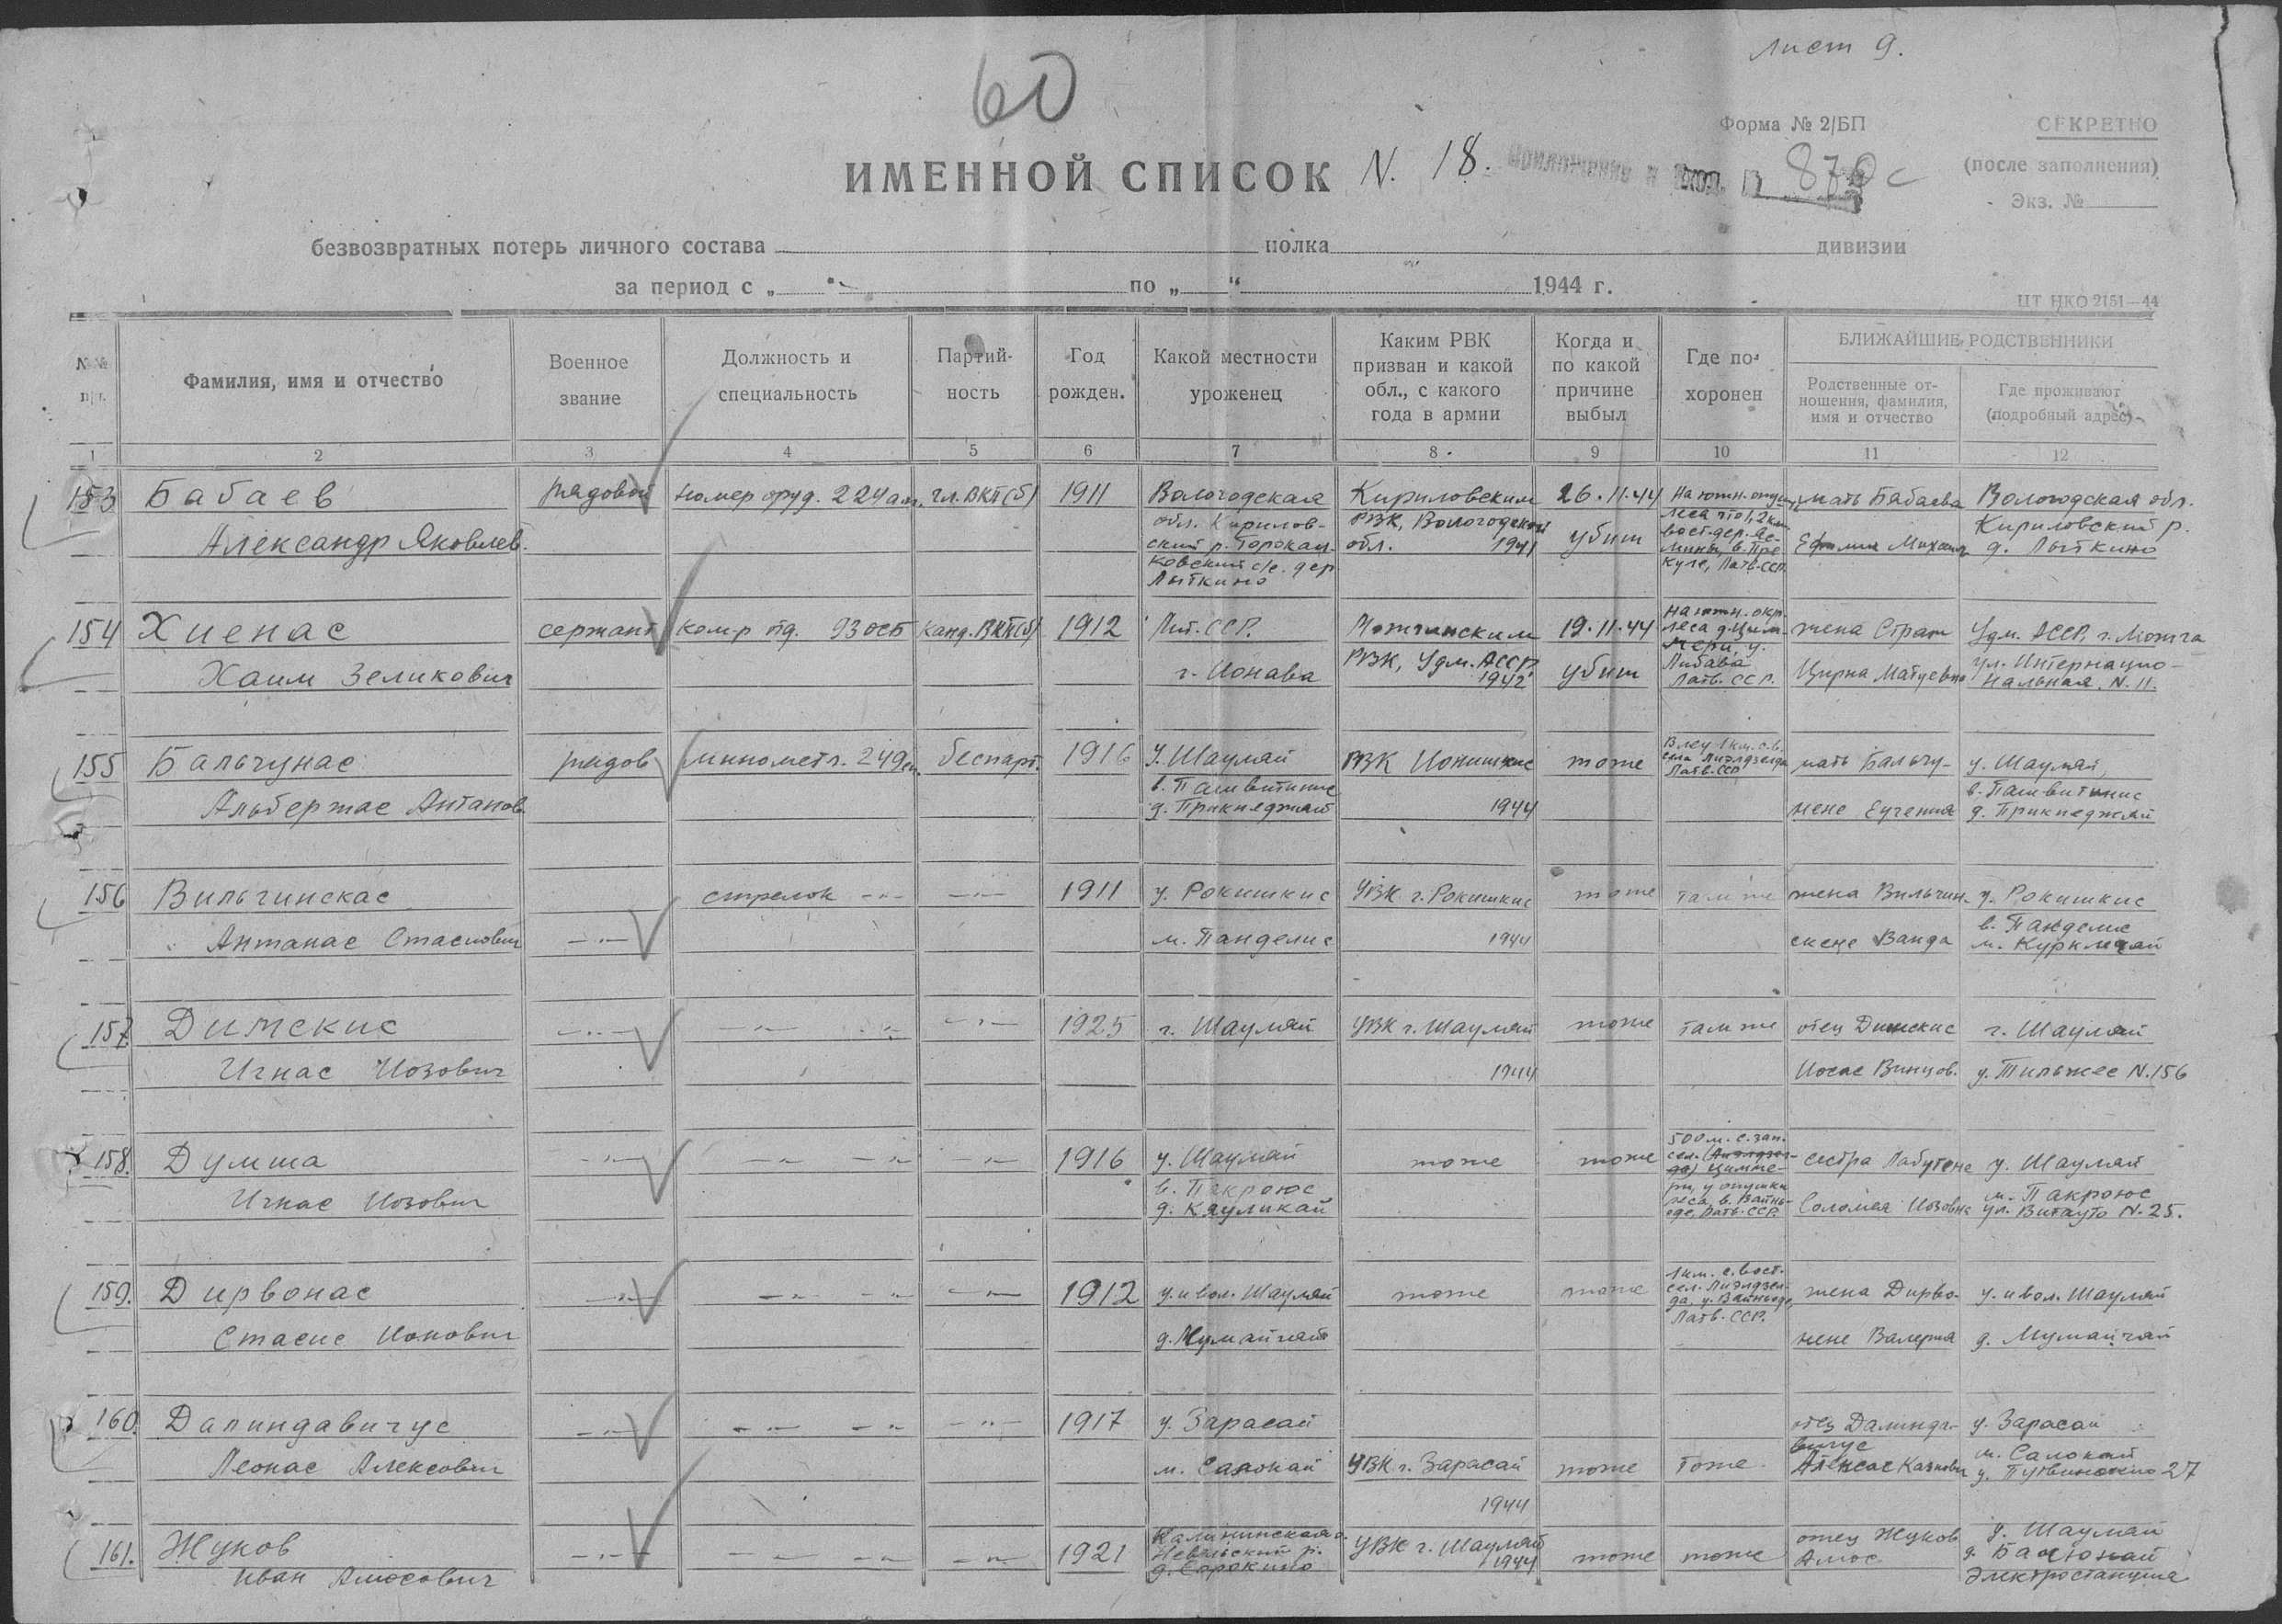 лист 9.
60
Форма № 2/БП
СЕКРЕТНО
(после заполнения)
Экз. №
ИМЕННОЙ СПИСОК N. 18. Приложение к вход. 870с
безвозвратных потерь личного состава полка дивизии
за период с „ “ по „ “ 1944 г.
ЦТ НКО 2151—44
№№ п/п.
Фамилия, имя и отчество
Военное звание
Должность и специальность
Партий-
ность
Год рожден.
Какой местности уроженец
Каким РВК
призван и какой
обл., с какого
года в армии
Когда и
по какой
причине
выбыл
Где по-
хоронен
БЛИЖАЙШИЕ РОДСТВЕННИКИ
Родственные от-
ношения, фамилия,
имя и отчество
Где проживают
(подробный адрес)
1 2 3 4 5 6 7 8 9 10 11 12
153 Бабаев рядовой номер оруд. 224 ап. чл. ВКП(б) 1911 Вологодская Кириловским 26.11.44 На южн. мать Бабаева Вологодская обл.
Александр Яковлев. обл. Кирилов-
ский р. дер
Лыткино
РВК, Вологодской
обл. 1941
убит
леса
Латв. ССР.
Кириловский р.
д. Лыткино
154 Хиенас сержант ком-р отд. 93 осб канд. ВКП(б) 1912 Лит. ССР. Можгинским 19.11.44 На южн. окр.
леса
жена Удм. АССР, г. Можга
Хаим Зеликович г. Ионава РВК, Удм. АССР,
1942
убит
Либава
Латв. ССР.
Цирна Матуевна ул. Интернацио-
нальная, N. 11.
155 Бальчунас рядов минометч. 249 беспарт. 1916 У. Шауляй РВК Ионишкис тоже
Латв. ССР
мать Бальчу- у. Шауляй,
Альбертас Антанов. в. Пашвитинис
д. Прикпеджяй
1944
нене Евгения в. Пашвитинис
д. Прикпеджяй
156 Вильчинскас стрелок -"- -"- 1911 у. Рокишкис УВК г. Рокишкис тоже там же жена Вильчин- у. Рокишкис
Антанас Стасиович -"- м. Панделис 1944 скене Ванда в. Панделис
м.
157. Димскис -"- -"- -"- -"- 1925 г. Шауляй УВК г. Шауляй тоже там же отец Димскис г. Шауляй
Игнас Иозович 1944 Иосас Винцов. у. Тильжес N. 156
158. Думша -"- -"- -"- -"- 1916 у. Шауляй тоже тоже 500 м. с. зап.
у опушки
леса, в. Вайнь-
оде, Латв. ССР.
сестра Лабутене у. Шауляй
Игнас Иозович в. Пакроюс
д. Кауликай
Соломея Иозовна м. Пакроюс
ул. Витауто N. 25.
159. Дирвонас -"- -"- -"- -"- 1912 у. и вол. Шауляй тоже тоже 1 км. с. вост.
Латв. ССР.
жена Дирво- у. и вол. Шауляй
Стасис Ионович д. Мумайчяй нене Валерия д. Мумайчяй
160. Далиндавичус -"- -"- -"- -"- 1917 у. Зарасай отец Далинда-
вичус
у. Зарасай
Леонас Алексович м. Салокай УВК г. Зарасай тоже тоже Алексас Казиович м. Салокай
27
1944
161. Жуков -"- -"- -"- -"- 1921 Калининская о.
Невельский р.
д. Сорокино
УВК г. Шауляй
1944
тоже тоже отец Жуков
Амос
у. Шауляй
д.
Электростанция
Иван Амосович